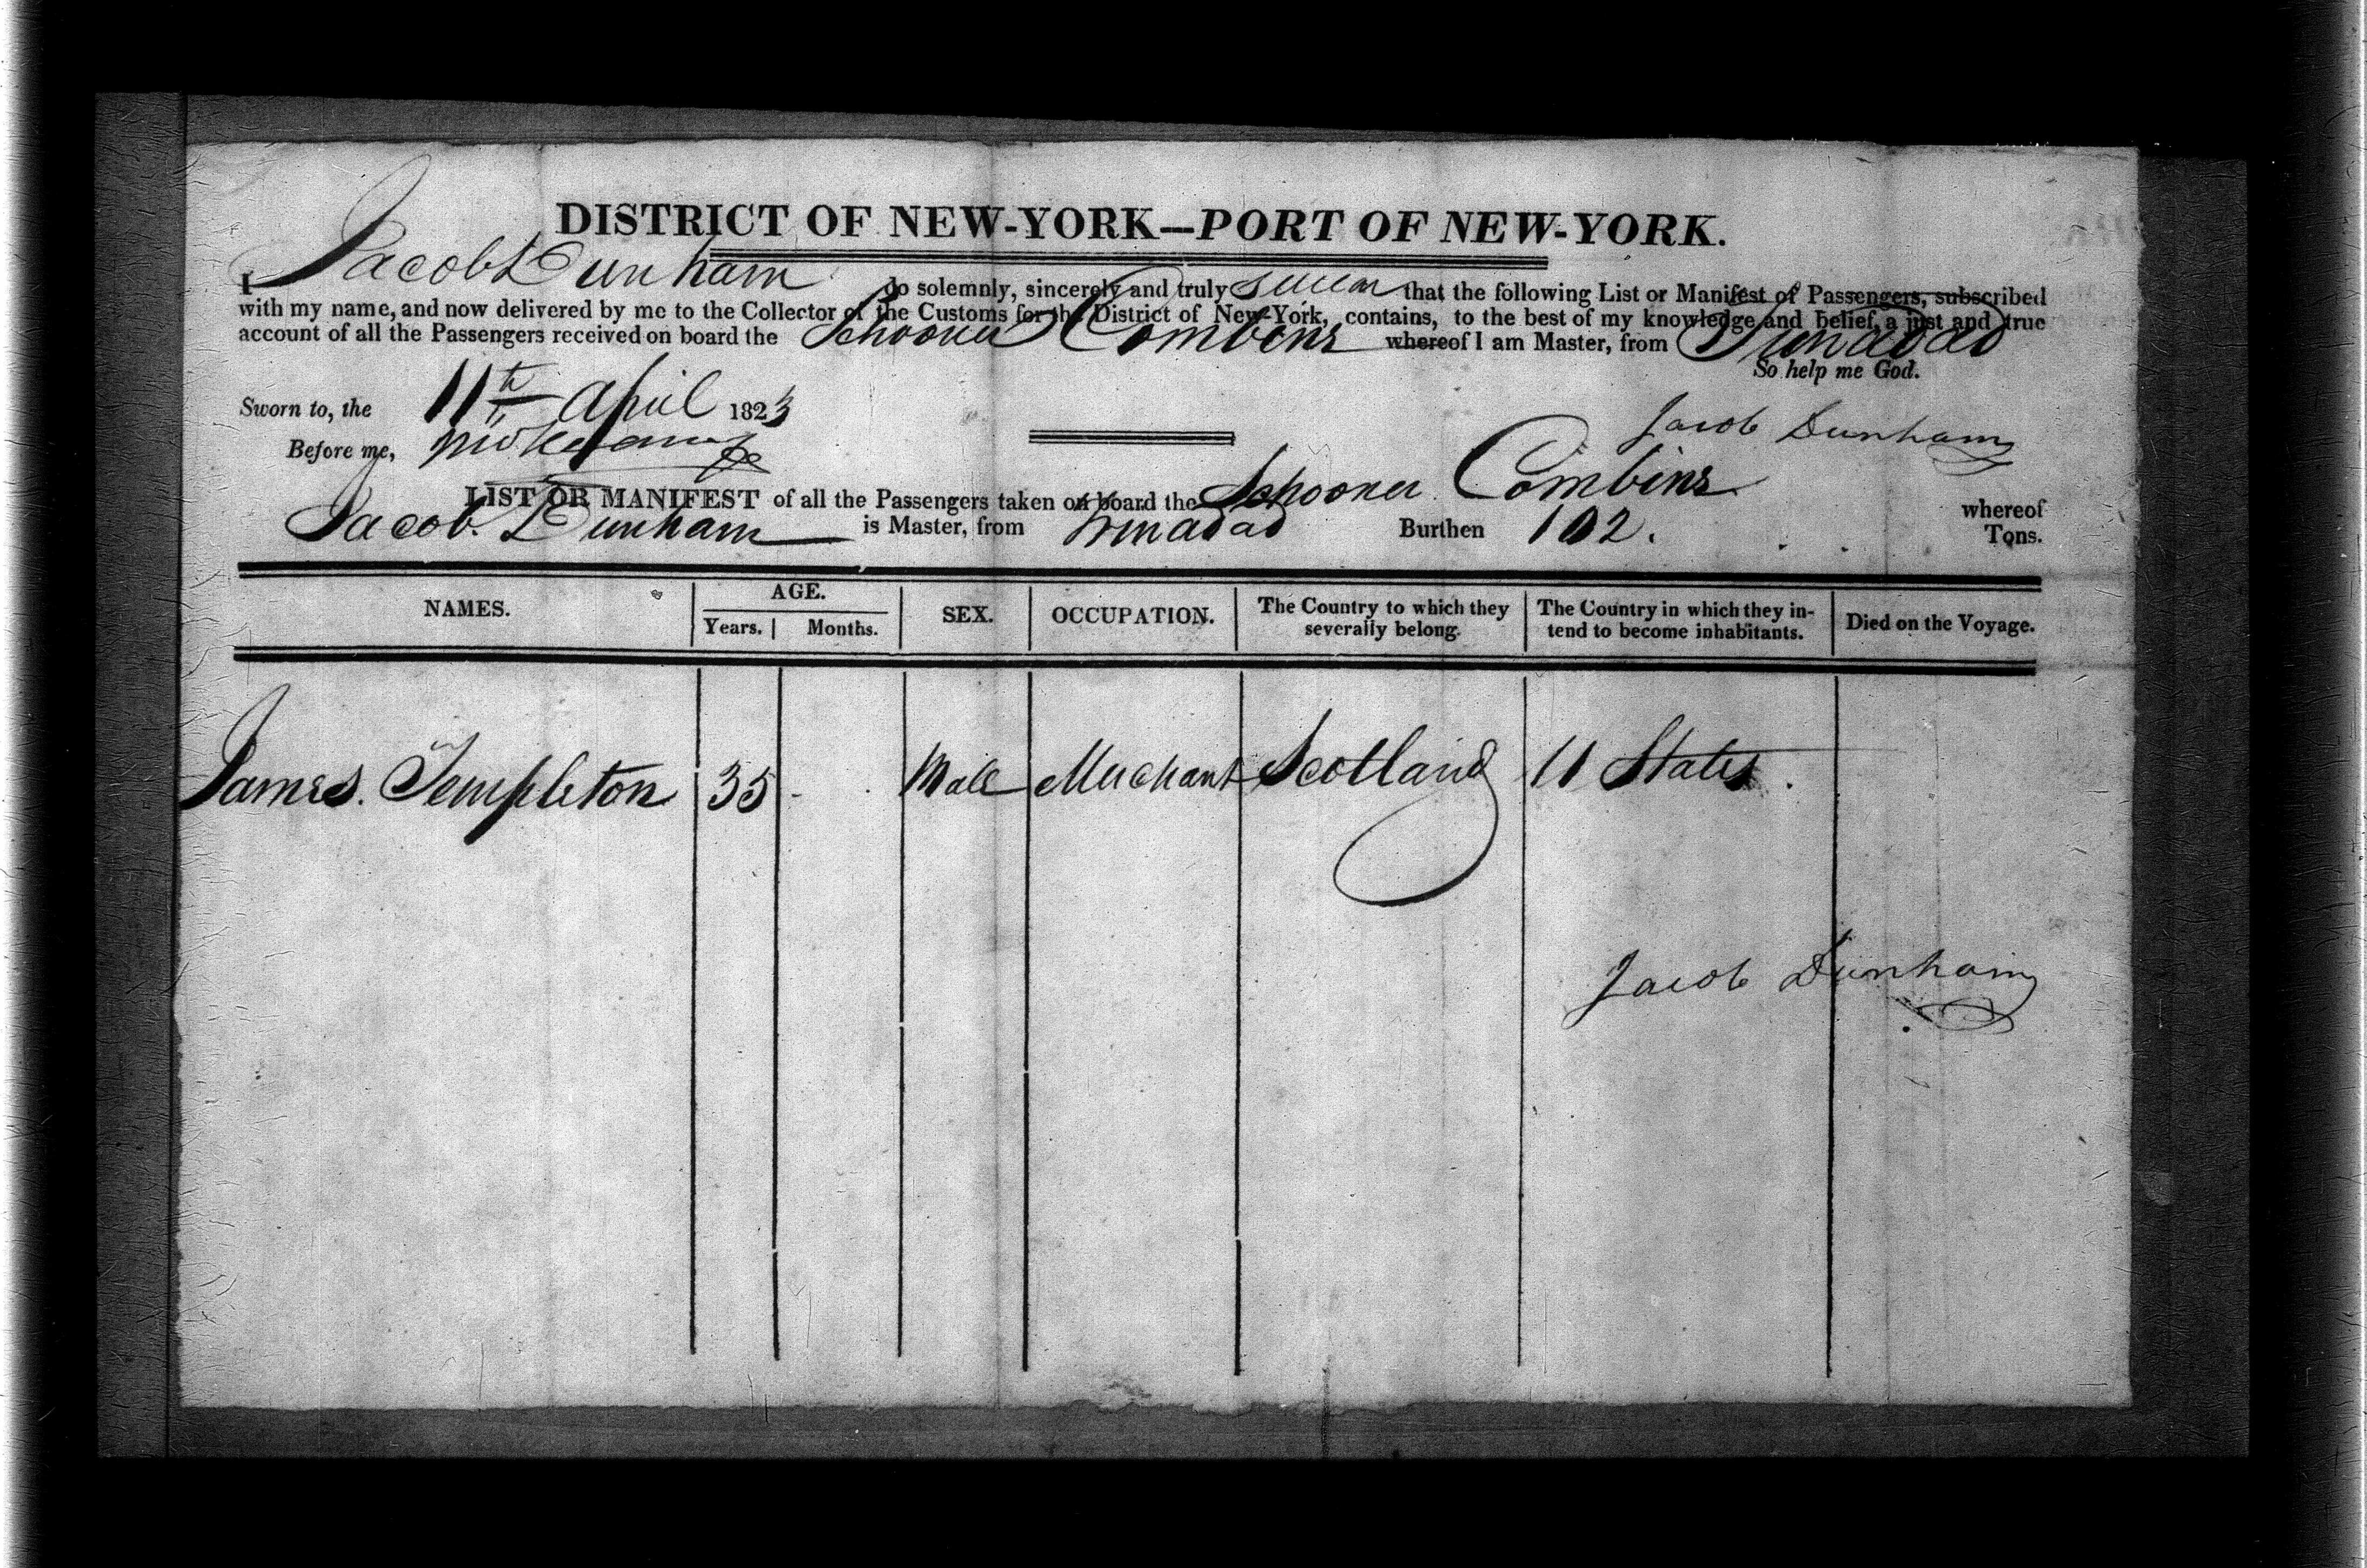 DISTRICT OF NEW-YORK—PORT OF NEW-YORK.
I Jacob Dunham do solemnly, sincerely and truly swear that the following List or Manifest of Passengers, subscribed
with my name, and now delivered by me to the Collector of the Customs for the District of New-York, contains, to the best of my knowledge and belief, a just and true
account of all the Passengers received on board the Schooner Combine whereof I am Master, from Trinadad
So help me God.
Sworn to, the 11th April 1823
Jacob Dunham
Before me,
LIST OR MANIFEST of all the Passengers taken on board the Schooner Combine whereof
Jacob Dunham is Master, from Trinadad Burthen 102. Tons.
NAMES. AGE. Years. Months. SEX. OCCUPATION. The Country to which they severally belong. The Country in which they intend to become inhabitants. Died on the Voyage.
James. Templeton 35 - Male Merchant Scotland U States.
Jacob Dunham